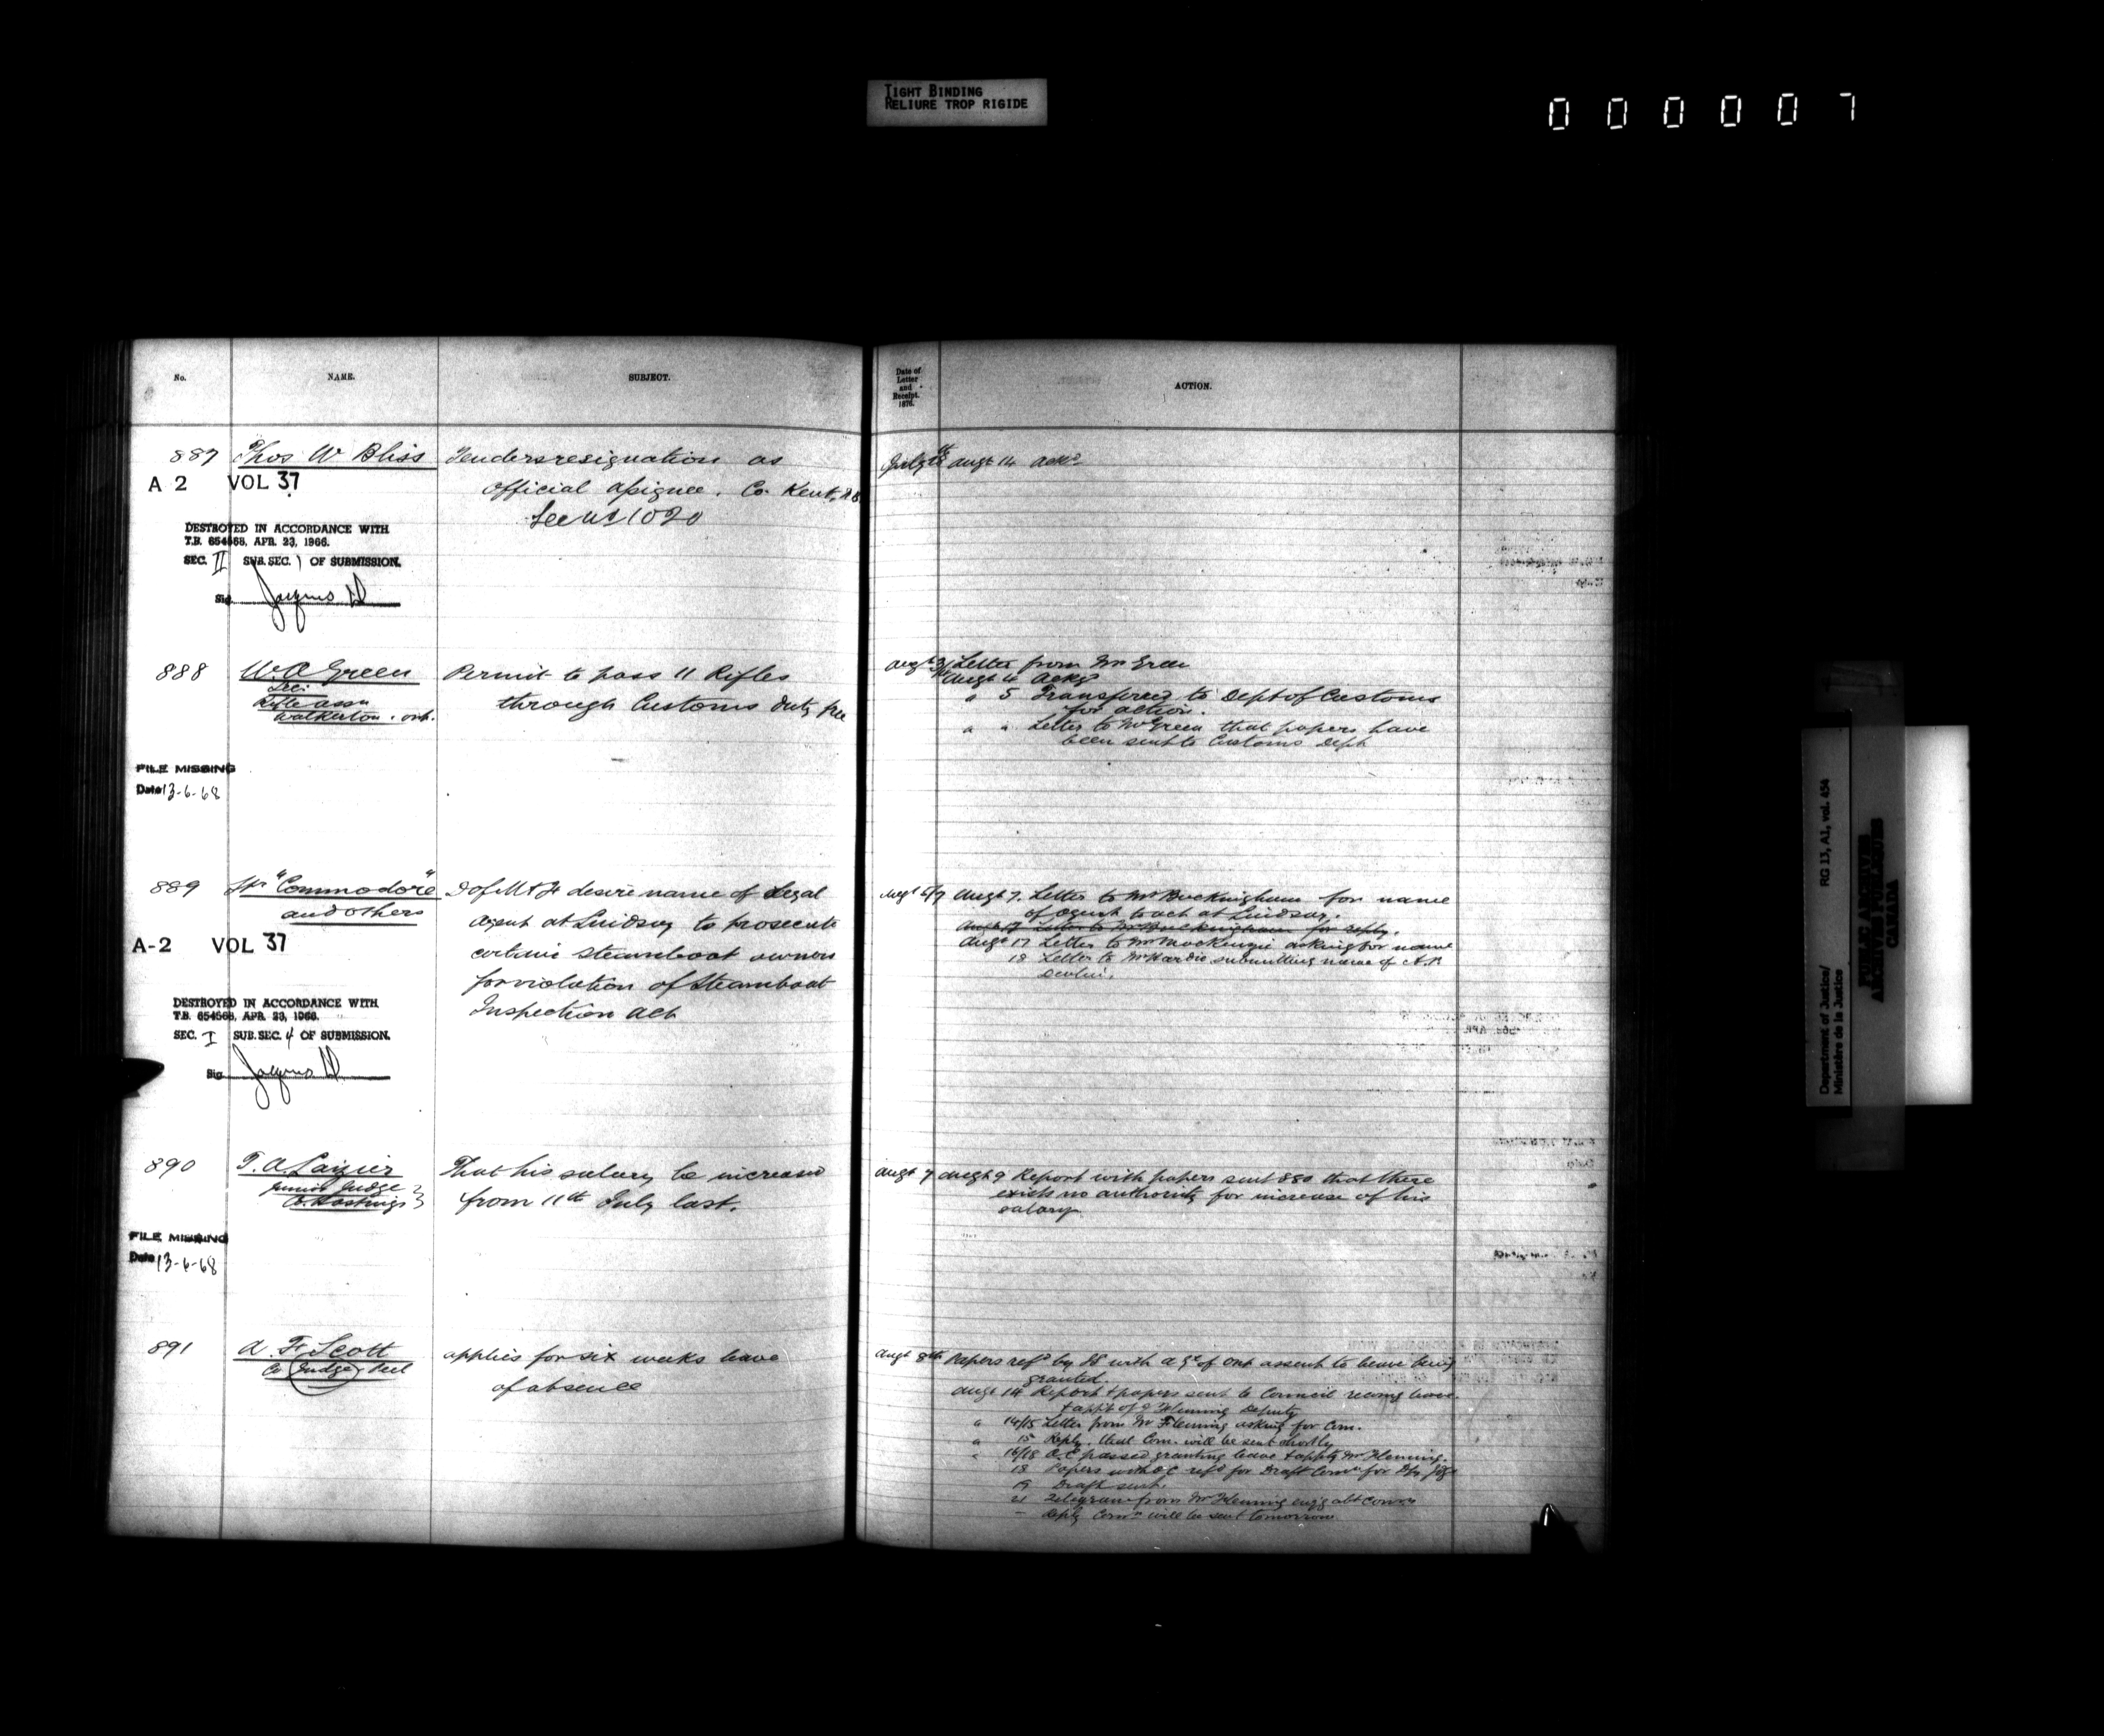 TIGHT BINDING
RELIURE TROP RIGIDE
000007
No. NAME. SUBJECT.
Date of
Letter
and
Receipt.
1876.
ACTION.
887 Thos W Bliss Tenders resignation as
official assignee. Co. Kent. N.B.
See No 1020
A 2 VOL 37
DESTROYED IN ACCORDANCE WITH
T.B. 654568, APR. 23, 1966.
SEC. II SUB. SEC. 1 OF SUBMISSION.
Sig.
July augt 14 ackd
888 W. A Green Permit to pass 11 Rifles
Sec.
Rifle assn through Customs duty free
Walkerton. ont.
FILE MISSING
Date 13-6-68
augt Letter from Mr Green
augt 4 ackd
" 5 Transferred to Dept of Customs
for action.
" " Letter to Mr Green that papers have
been sent to Customs Dept
889 Str "Commodore" D of M & F desire name of Legal
and others agent at Lindsay to prosecute
certain steamboat owners
for violation of Steamboat
Inspection Act
A-2 VOL 37
DESTROYED IN ACCORDANCE WITH
T.B. 654568, APR. 23, 1966.
SEC. I SUB. SEC. 4 OF SUBMISSION.
Sig
augt 6/7 augt 7. Letter to Mr Buckingham for name
of agent to act at Lindsay.
augt 17 Letter to Mr Buckingham for reply.
augt 17 Letter to Mr MacKenzie asking for name
18 Letter to Mr Hardie submitting name of A.
Devlin.
890 T. A. Lazier That his salary be increased
Junior Judge from 11th July last.
Co. Hastings
FILE MISSING
Date 13-6-68
augt 7 augt 9 Report with papers sent that there
exists no authority for increase of his
salary
891 A. F. Scott applies for six weeks leave
Co Judge Peel of absence
augt 8th Papers refd by with of Ont assent to leave being
granted.
augt 14 Report & papers sent to Council leave
& appt of Fleming Deputy
" 14/15 Letter from Mr Fleming asking for Com.
" 15 Reply. that Com. will be sent shortly
" 16/18 O.C passed granting leave & apptg Mr Fleming.
18 Papers with O C refd for Draft Comn for
19 Draft sent.
21 Telegram from Mr Fleming
— Reply Comn will be sent tomorrow
Department of Justice/
Ministère de la Justice
RG 13, A1, vol. 454
PUBLIC ARCHIVES
ARCHIVES PUBLIQUES
CANADA